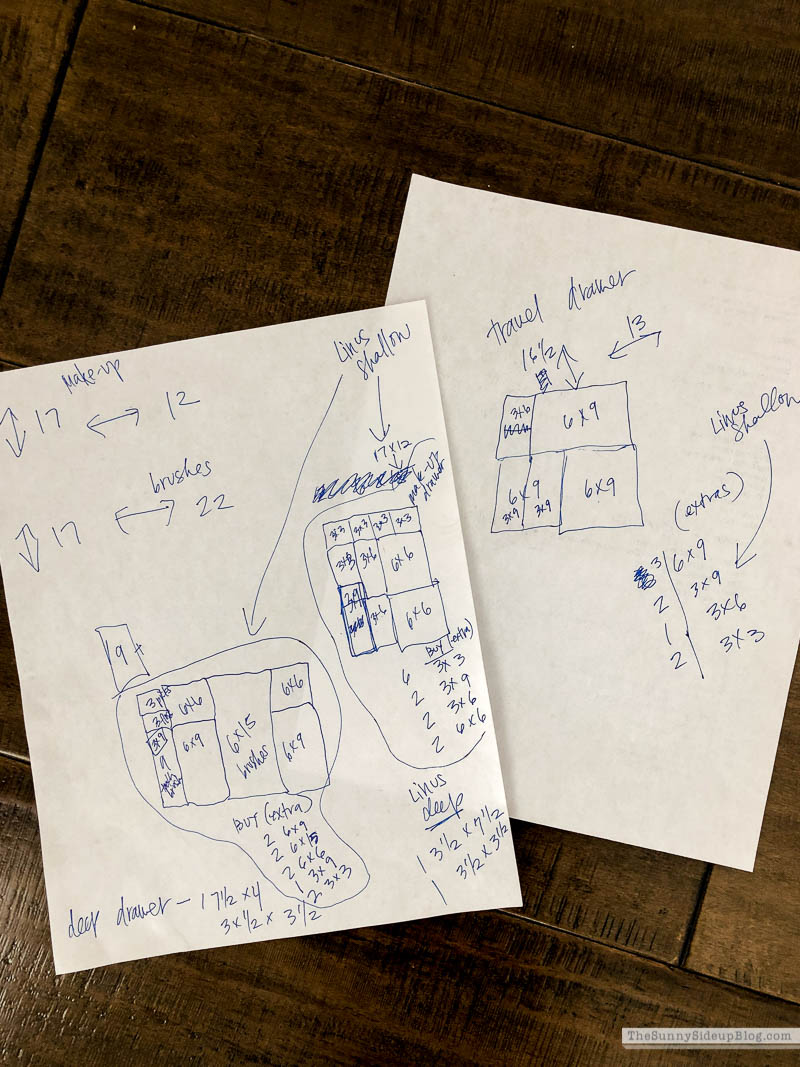 make-up
17 12
brushes
17 22
Linus
shallow
17x12
make-up
drawer
3x3 3x3 3x3 3x3
3x3 3x6 6x6
3x9
3x6 6x6
BUY (extra)
6 3x3
2 3x9
2 3x6
2 6x6
9
6x6 6x6
3x9 6x9 6x15 6x9
9 brushes
BUY (extra)
2 6x9
2 6x15
2 6x6
1 3x9
2 3x3
Linus
deep
1 3 1/2 x 7 1/2
1 3 1/2 x 3 1/2
deep drawer - 17 1/2 x 4
3 x 1/2 x 3 1/2
travel drawer
16 1/2 13
3x6 6x9
6x9 6x9
3x9 3x9
Linus
shallow
(extras)
3 6x9
2 3x9
1 3x6
2 3x3
TheSunnySideupBlog.com